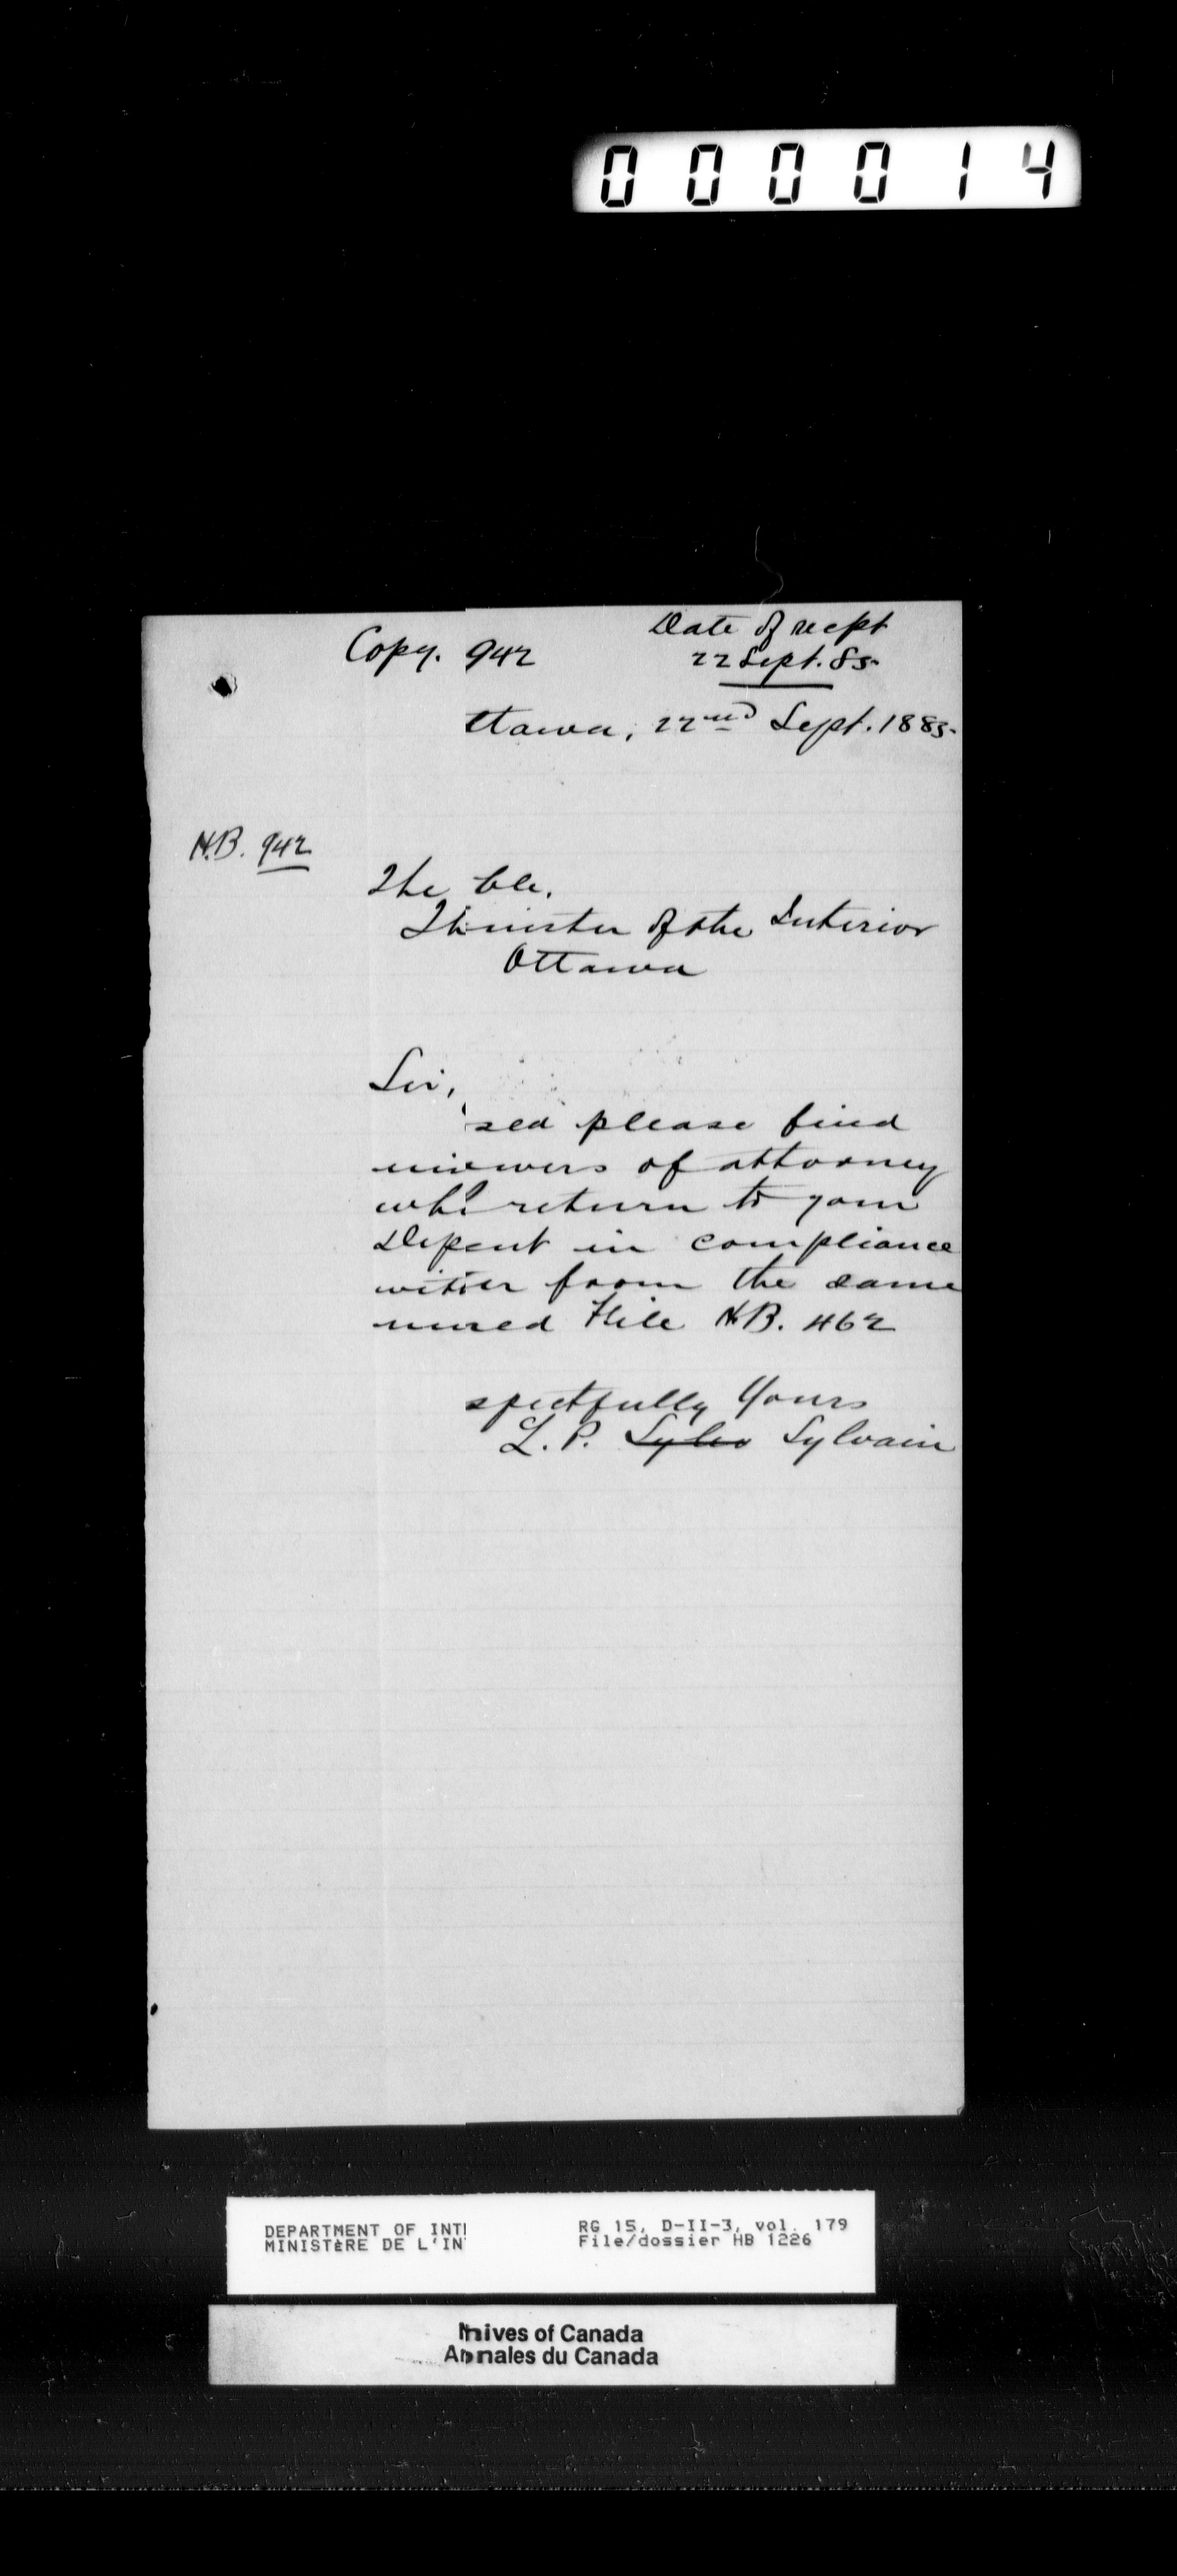 000014
Date of recpt
Copy. 942 22 Sept. 85.
ttawa, 22nd Sept. 1885.
H.B. 942
The ble.
nister of the Interior
Ottawa
Sir,
sed please find
wers of attorney
return to your
Depent in compliance
wither from the same
File H.B. 462
spectfully Yours
L. P. Sylva Sylvain
DEPARTMENT OF INT
MINISTÈRE DE L'IN
RG 15, D-II-3, vol. 179
File/dossier HB 1226
hives of Canada
nales du Canada